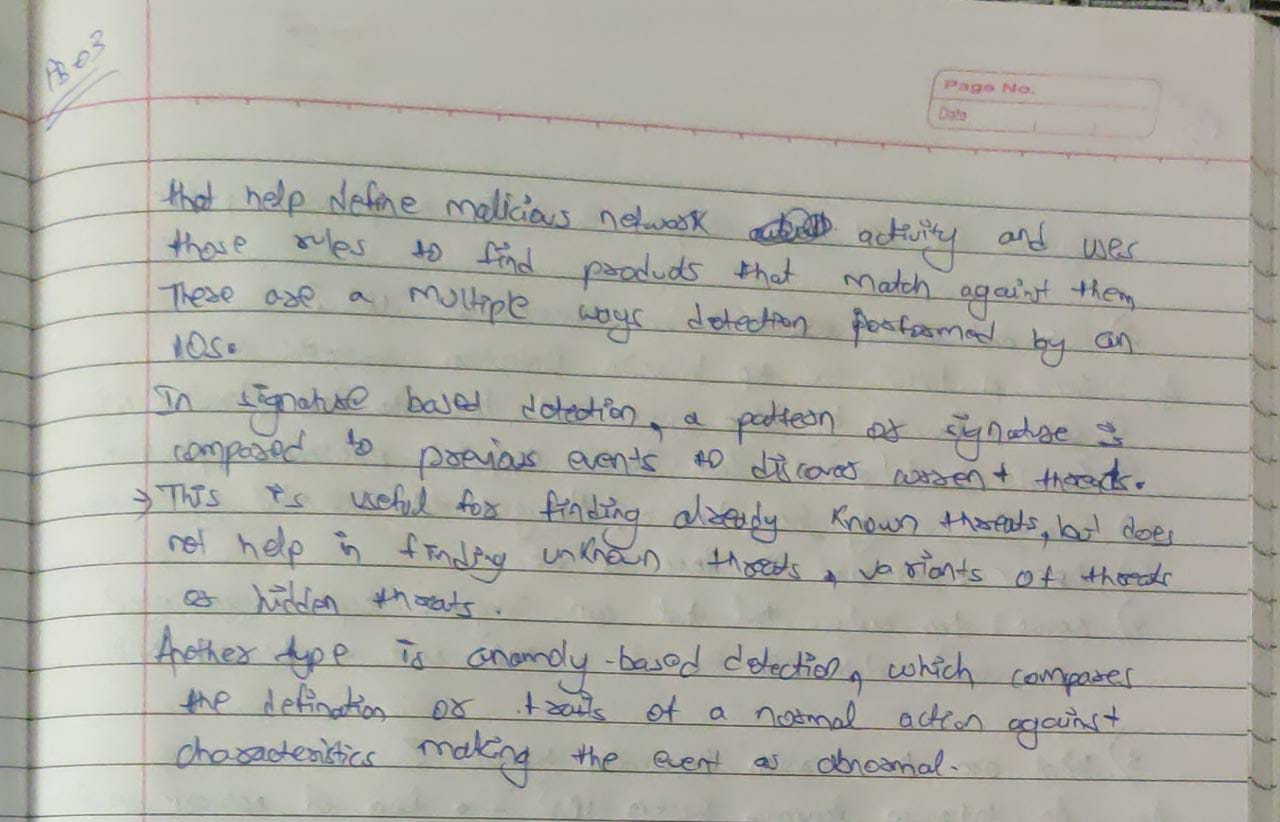 AB 03
Page No.
Date
that help define malicious network activity and uses
those rules to find products that match against them
There are a multiple ways detection performed by an
IDS.
In signature based detection, a pattern or signature is
compared to previous events to discover current threats.
→ This is useful for finding already known threats, but does
not help in finding unknown threats, variants of threats
or hidden threats.
Another type is anomaly-based detection, which compares
the defination or traits of a normal action against
characteristics making the event as abnormal.